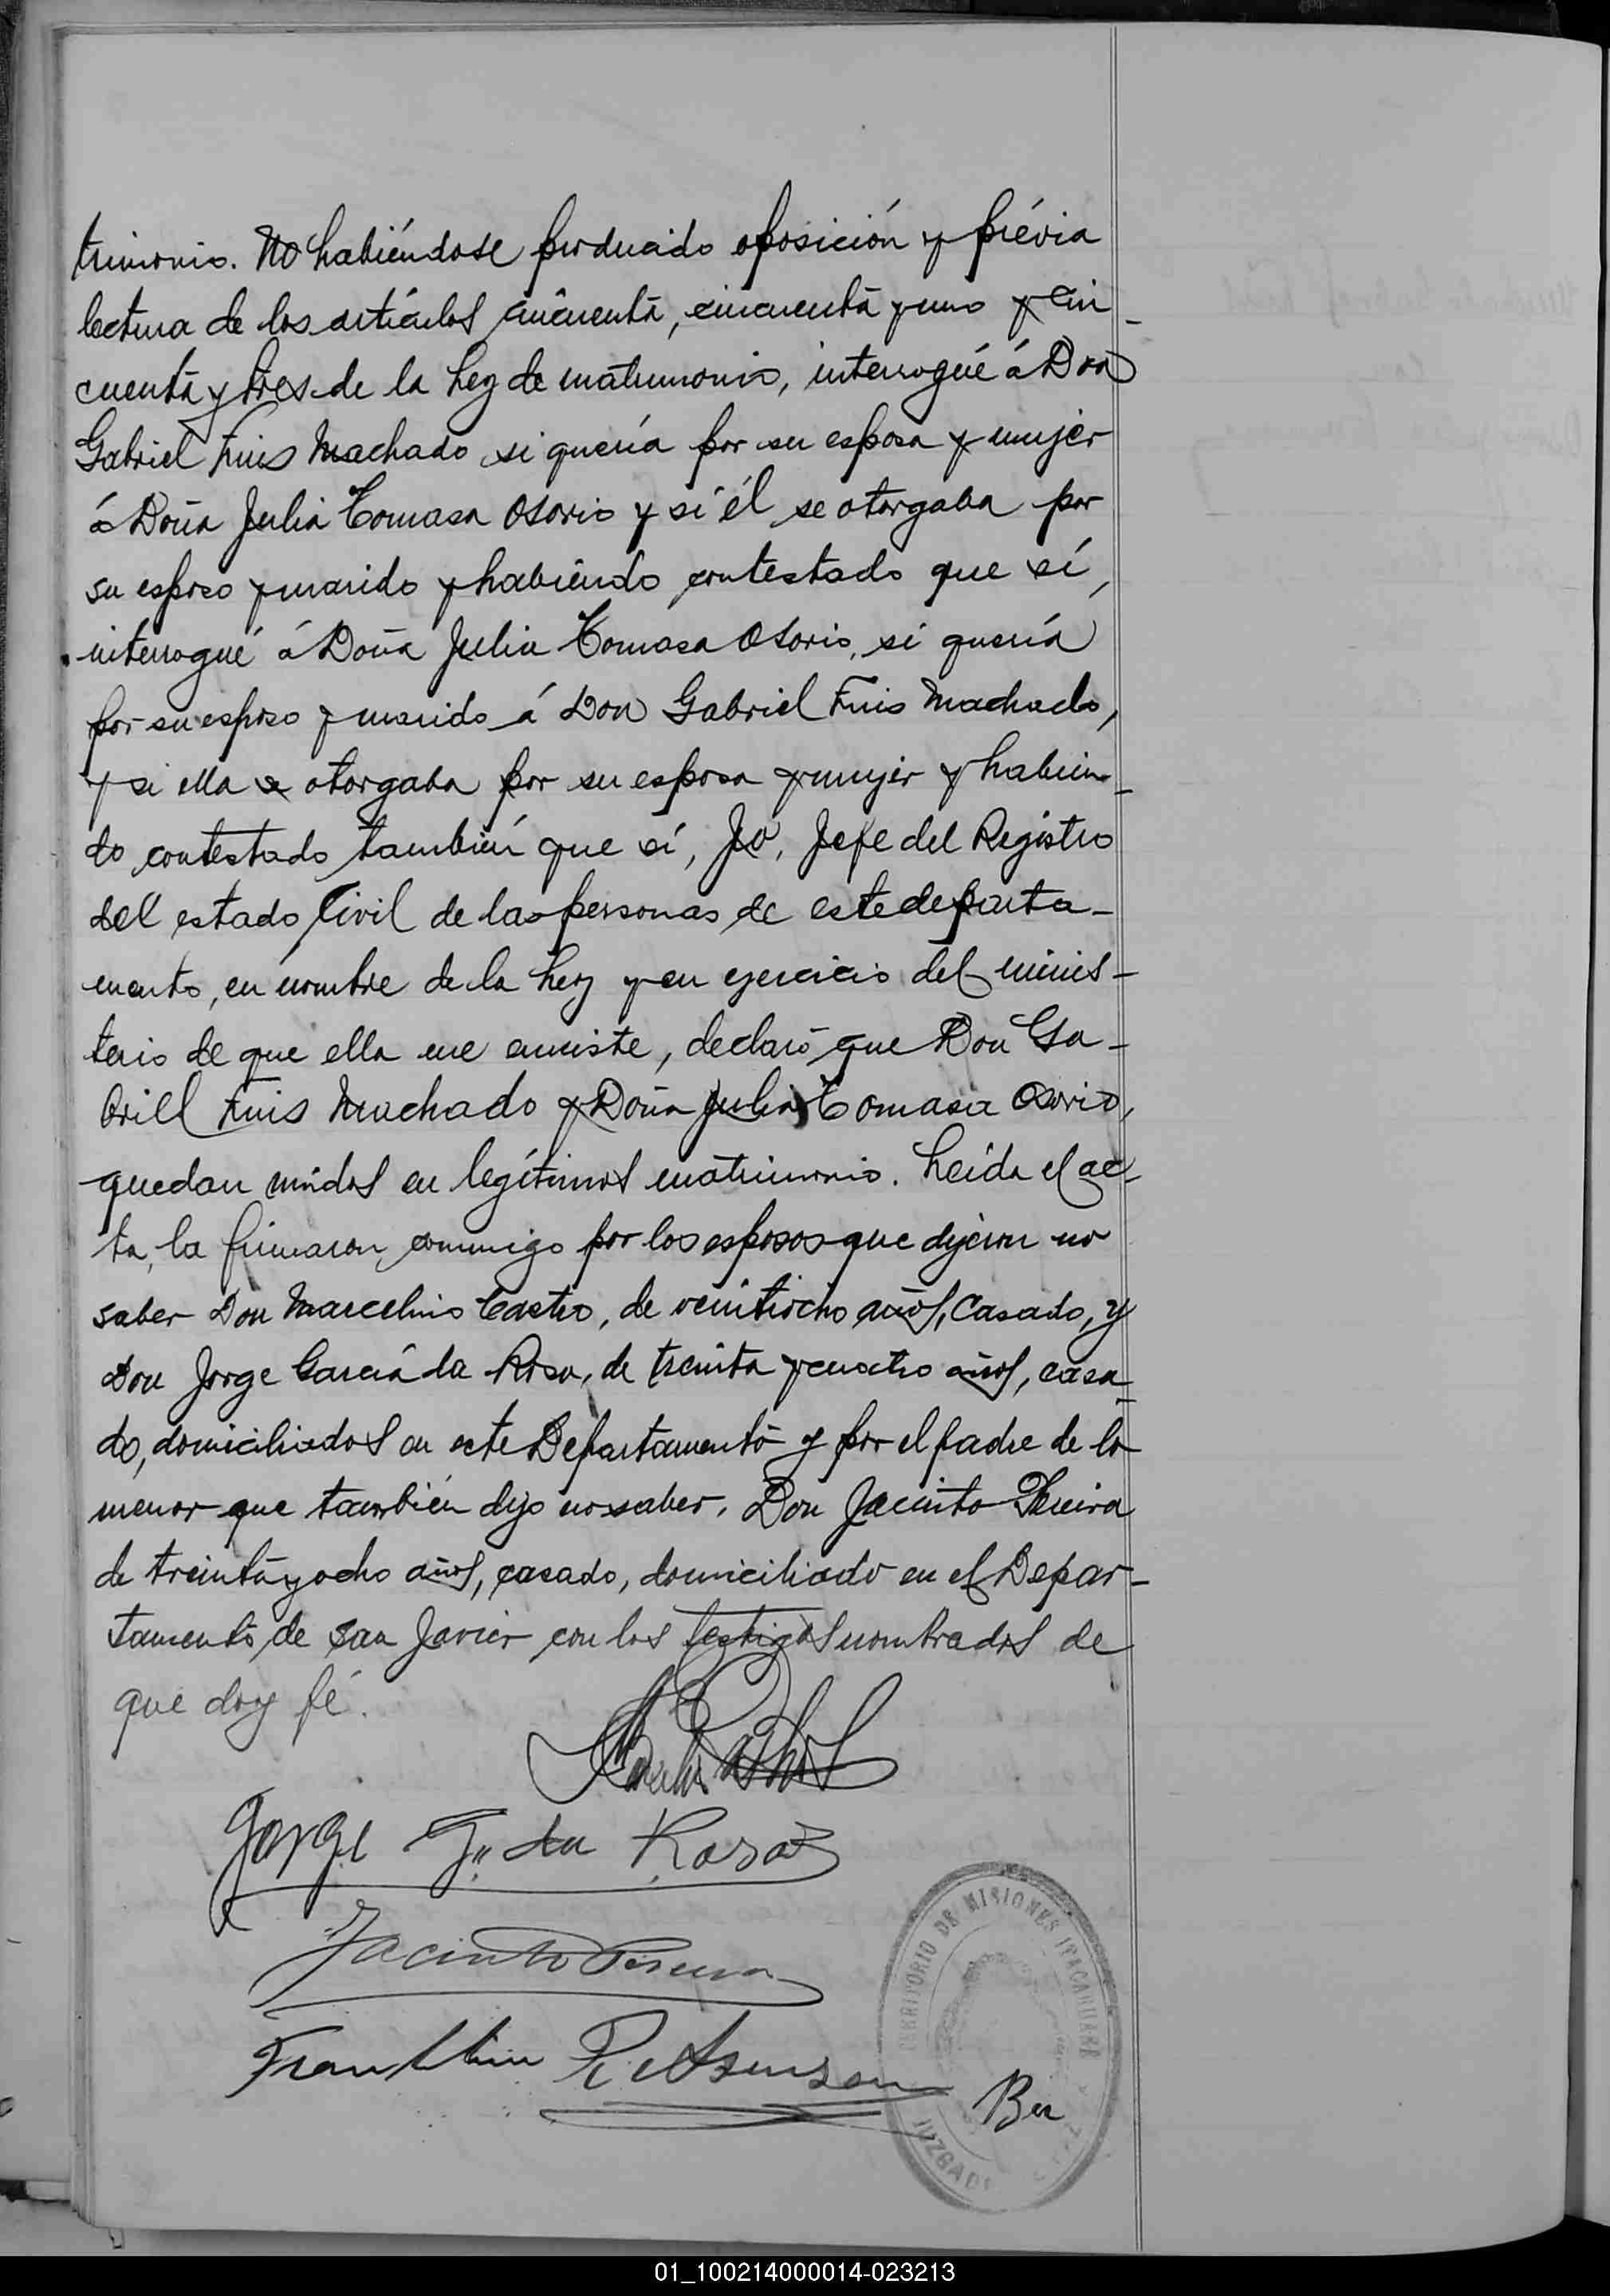 trimonio. No habiéndose producido oposición y prévia
lectura de los artículos cincuenta, cincuenta y uno y cin-
cuenta y tres de la Ley de matrimonio, interrogué á Don
Gabriel Luis Machado si quería por su esposa y mujer
á Doña Julia Tomasa Osorio y si él se otorgaba por
su esposo y marido y habiendo contestado que sí,
interrogué á Doña Julia Tomasa Osorio, si quería
por su esposo y marido á Don Gabriel Luis Machado,
y si ella se otorgaba por su esposa y mujer y habien-
do contestado también que sí, Yo, Jefe del Registro
del estado Civil de las personas de este departa-
mento, en nombre de la Ley y en ejercicio del minis-
terio de que ella me enviste, declaro que Don Ga-
briel Luis Machado y Doña Julia Tomasa Osorio,
quedan unidos en legítimos matrimonio. Leída el ac-
ta, la firmaron conmigo por los esposos que dijeron no
saber Don Marcelino Castro, de veintiocho años, Casado, y
Don Jorge García da Rosa, de treinta y cuatro años, casa-
do, domiciliados en este Departamento y por el padre de la
menor que también dijo no saber, Don Jacinto Pereira
de treinta y ocho años, casado, domiciliado en el Depar-
tamento de San Javier con los testigos nombrados de
que doy fé.
Jorge G. da Rosa
Jacinto Pereira
Franklin
TERRITORIO DE MISIONES
JUZGADO
01_100214000014-023213